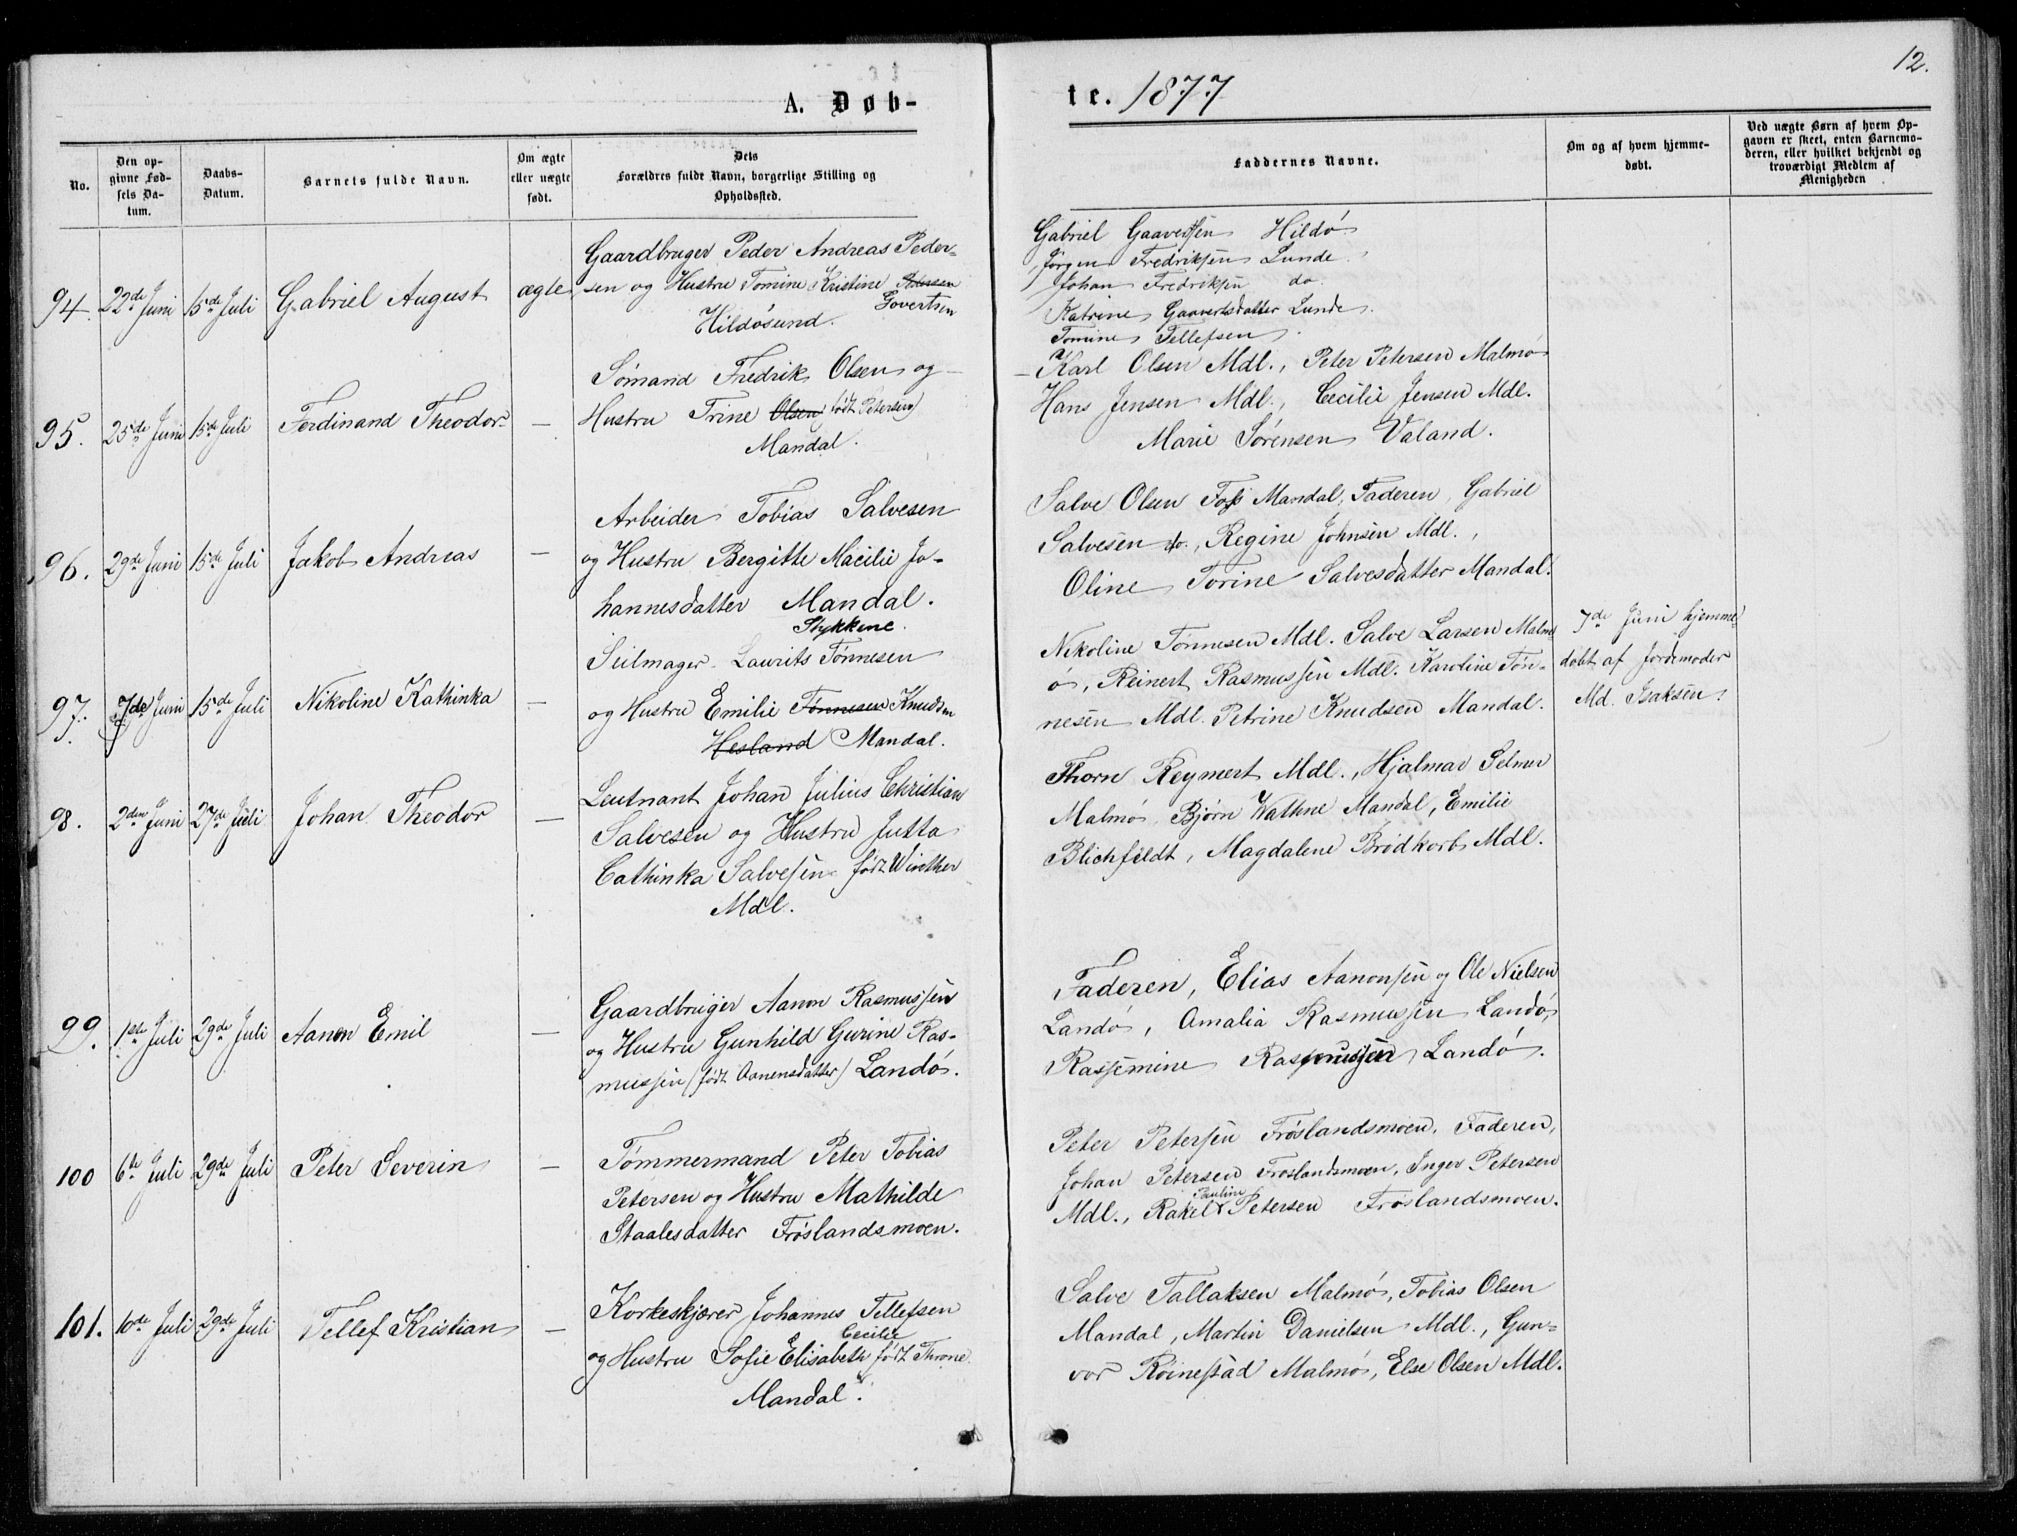 12.
A. Døb-
te. 1877
No.
Den op-
givne Fød-
sels Da-
tum.
Daabs-
Datum.
Barnets fulde Navn.
Om ægte
eller uægte
født.
Dets
Forældres fulde Navn, borgerlige Stilling og
Opholdssted.
Faddernes Navne.
Om og af hvem hjemme-
døbt.
Ved uægte Børn af hvem Op-
gaven er skeet, enten Barnemo-
deren, eller hvilket bekjendt og
troværdigt Medlem af
Menigheden
94. 22de Juni 15de Juli Gabriel August ægte
Gaardbruger Peder Andreas Peder-
sen og Hustru Tomine Kristine
Govertsen
Hildøsund.
Gabriel Gaavertsen Hildø
Jørgen Fredriksen Lunde.
Johan Fredriksen do.
Katrine Gaavertsdatter Lunde.
Tomine Tellefsen
95. 25de Juni 15de Juli Ferdinand Theodor —
Sømand Fredrik Olsen og
Hustru Trine Olsen født Petersen)
Mandal.
Karl Olsen Mdl., Peter Petersen Malmø
Hans Jensen Mdl., Cecilie Jensen Mdl.
Marie Sørensen Valand.
96. 29de Juni 15de Juli Jakob Andreas —
Arbeider Tobias Salvesen
og Hustru Bergitte Macilie Jo-
hannesdatter Mandal.
Salve Olsen Foss Mandal, Faderen, Gabriel
Salvesen do., Regine Johnsen Mdl.,
Oline Torine Salvesdatter Mandal.
97. 7de Juni 15de Juli Nikoline Kathinka —
Stykkene.
Seilmager Laurits Tønnesen
og Hustru Emilie Tønnesen Knudsen
Hesland Mandal.
Nikoline Tønnesen Mdl. Salve Larsen Malm
ø, Reinert Rasmussen Mdl. Karoline Tøn-
nesen Mdl. Petrine Knudsen Mandal.
7de Juni hjemme-
døbt af Jordemoder
Md. Isaksen.
98. 2den Juni 27de Juli Johan Theodor —
Leutnant Johan Julius Christian
Salvesen og Hustru Jutta
Cathinka Salvesen født Winther
Mdl.
Thorn Reymert Mdl., Hjalmar Selmer
Malmø, Bjørn Wathne Mandal, Emilie
Blichfeldt, Magdalene Brødkorb Mdl.
99. 1ste Juli 29de Juli Aanon Emil —
Gaardbruger Aanon Rasmussen
og Hustru Gunhild Gurine Ras-
mussen (født Aanensdatter) Landø.
Faderen, Elias Aanonsen og Ole Nielsen
Landø, Amalia Rasmussen Landø,
Rassemine Rasmussen Landø.
100 6te Juli 29de Juli Peter Severin —
Tømmermand Peter Tobias
Petersen og Hustru Mathilde
Staalesdatter Frøslandsmoen.
Peter Petersen Frøslandsmoen. Faderen,
Johan Petersen Frøslandsmoen, Inger Petersen
Pauline
Mdl., Rakel Petersen Frøslandsmoen.
101. 10de Juli 29de Juli Tellef Kristian —
Korkeskjærer Johannes Tellefsen
Cecilie
og Hustru Sofie Elisabeth født Throne
Mandal.
Salve Tallaksen Malmø, Tobias Olsen
Mandal, Martin Danielsen Mdl., Gun-
vor Røinestad Malmø, Else Olsen Mdl.